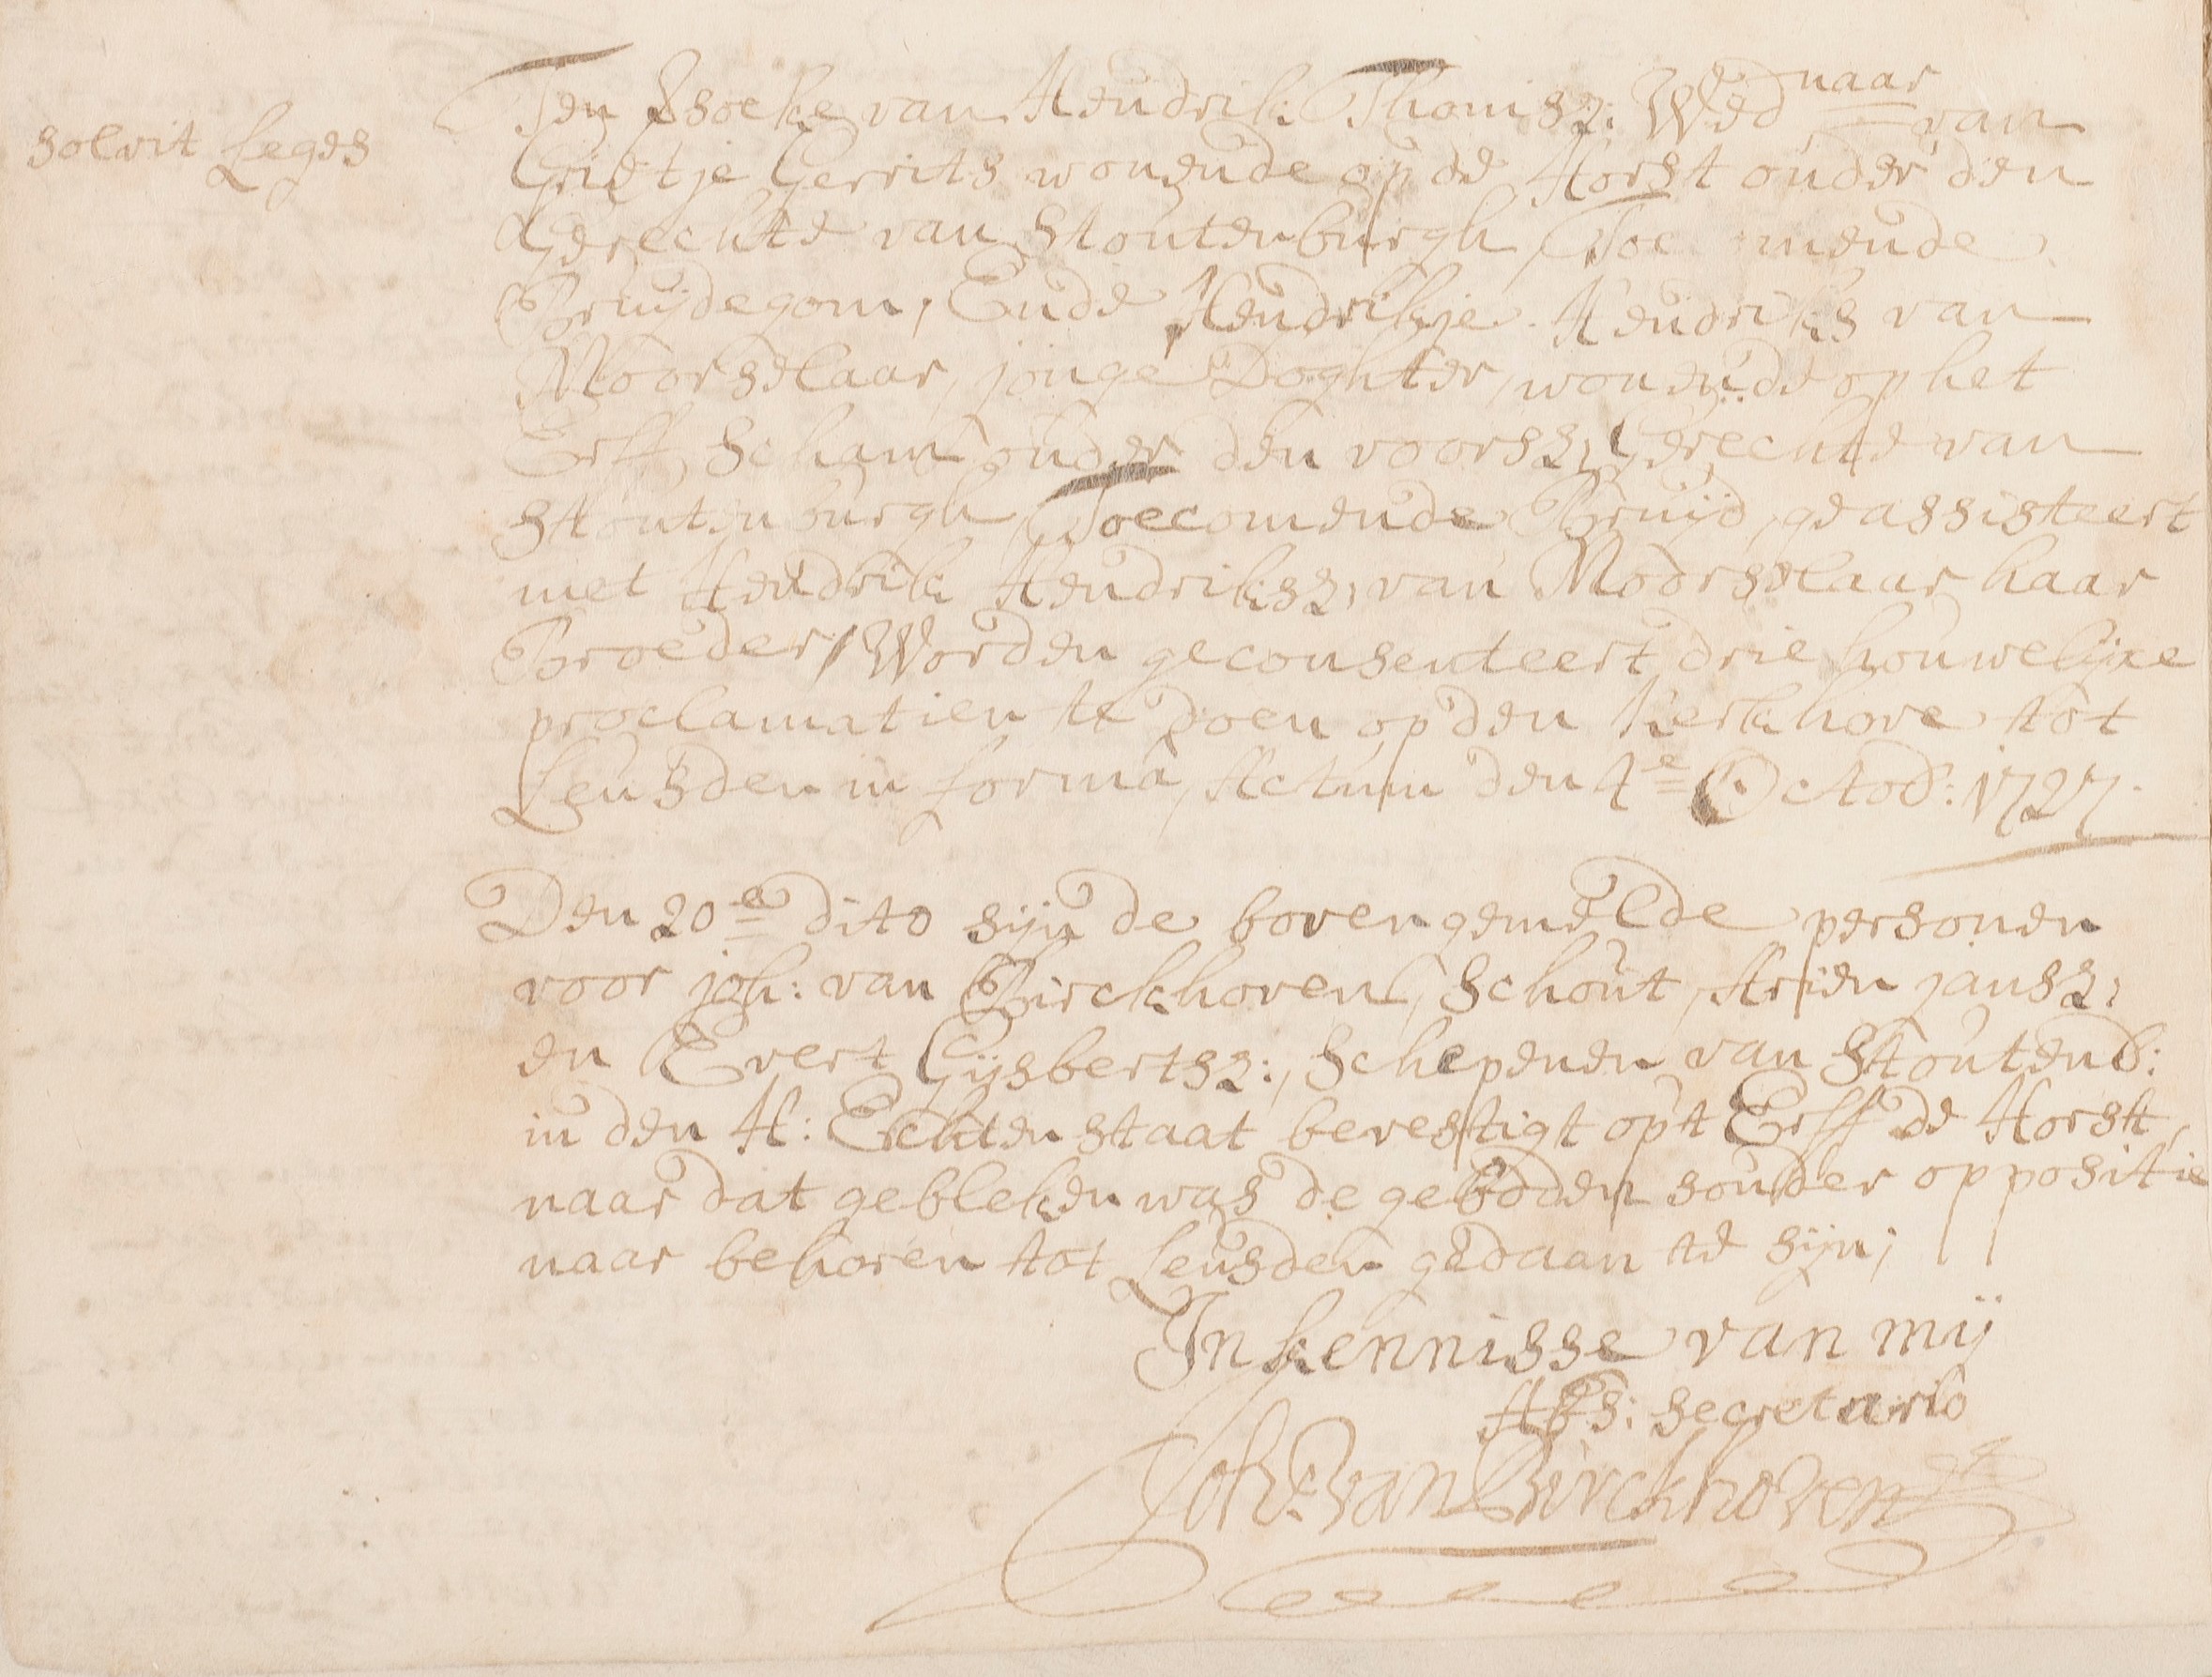 solvit Leges
Ten Versoeke van Hendrik Thonisz: Wednaar van
Grietje Gerrits wonende op de Horst onder den
Gerechte van Stoutenburgh, Toe mende
Bruijdegom, Ende Hendrikje Hendriks van
Moorselaar, jonge Doghter, wonende op het
Erff Scham onder den voorsz, Gerechte van
Stoutenburgh, Toecomende Bruijd, geassisteert
met Hendrik Hendriksz, van Moorselaar haar
Broeder, Worden geconsenteert drie houwelijxe
proclamatien te doen op den kerkhove tot
Leusden in forma, Actum den 4e Octob: 1727.
Den 20e dito sijn de bovengemelde personen
voor joh: van Birckhoven, Schout, Arien jansz,
en Evert Gijsbertsz:, Schepenen van Stoutenb:
in den H: Echten staat bevestigt op't Erff de Horst,
naar dat gebleken was de geboden sonder oppositie
naar behoren tot Leusden gedaan te sijn;
In kennisse van mij
Abs: secretario
Joh: van Birckhoven